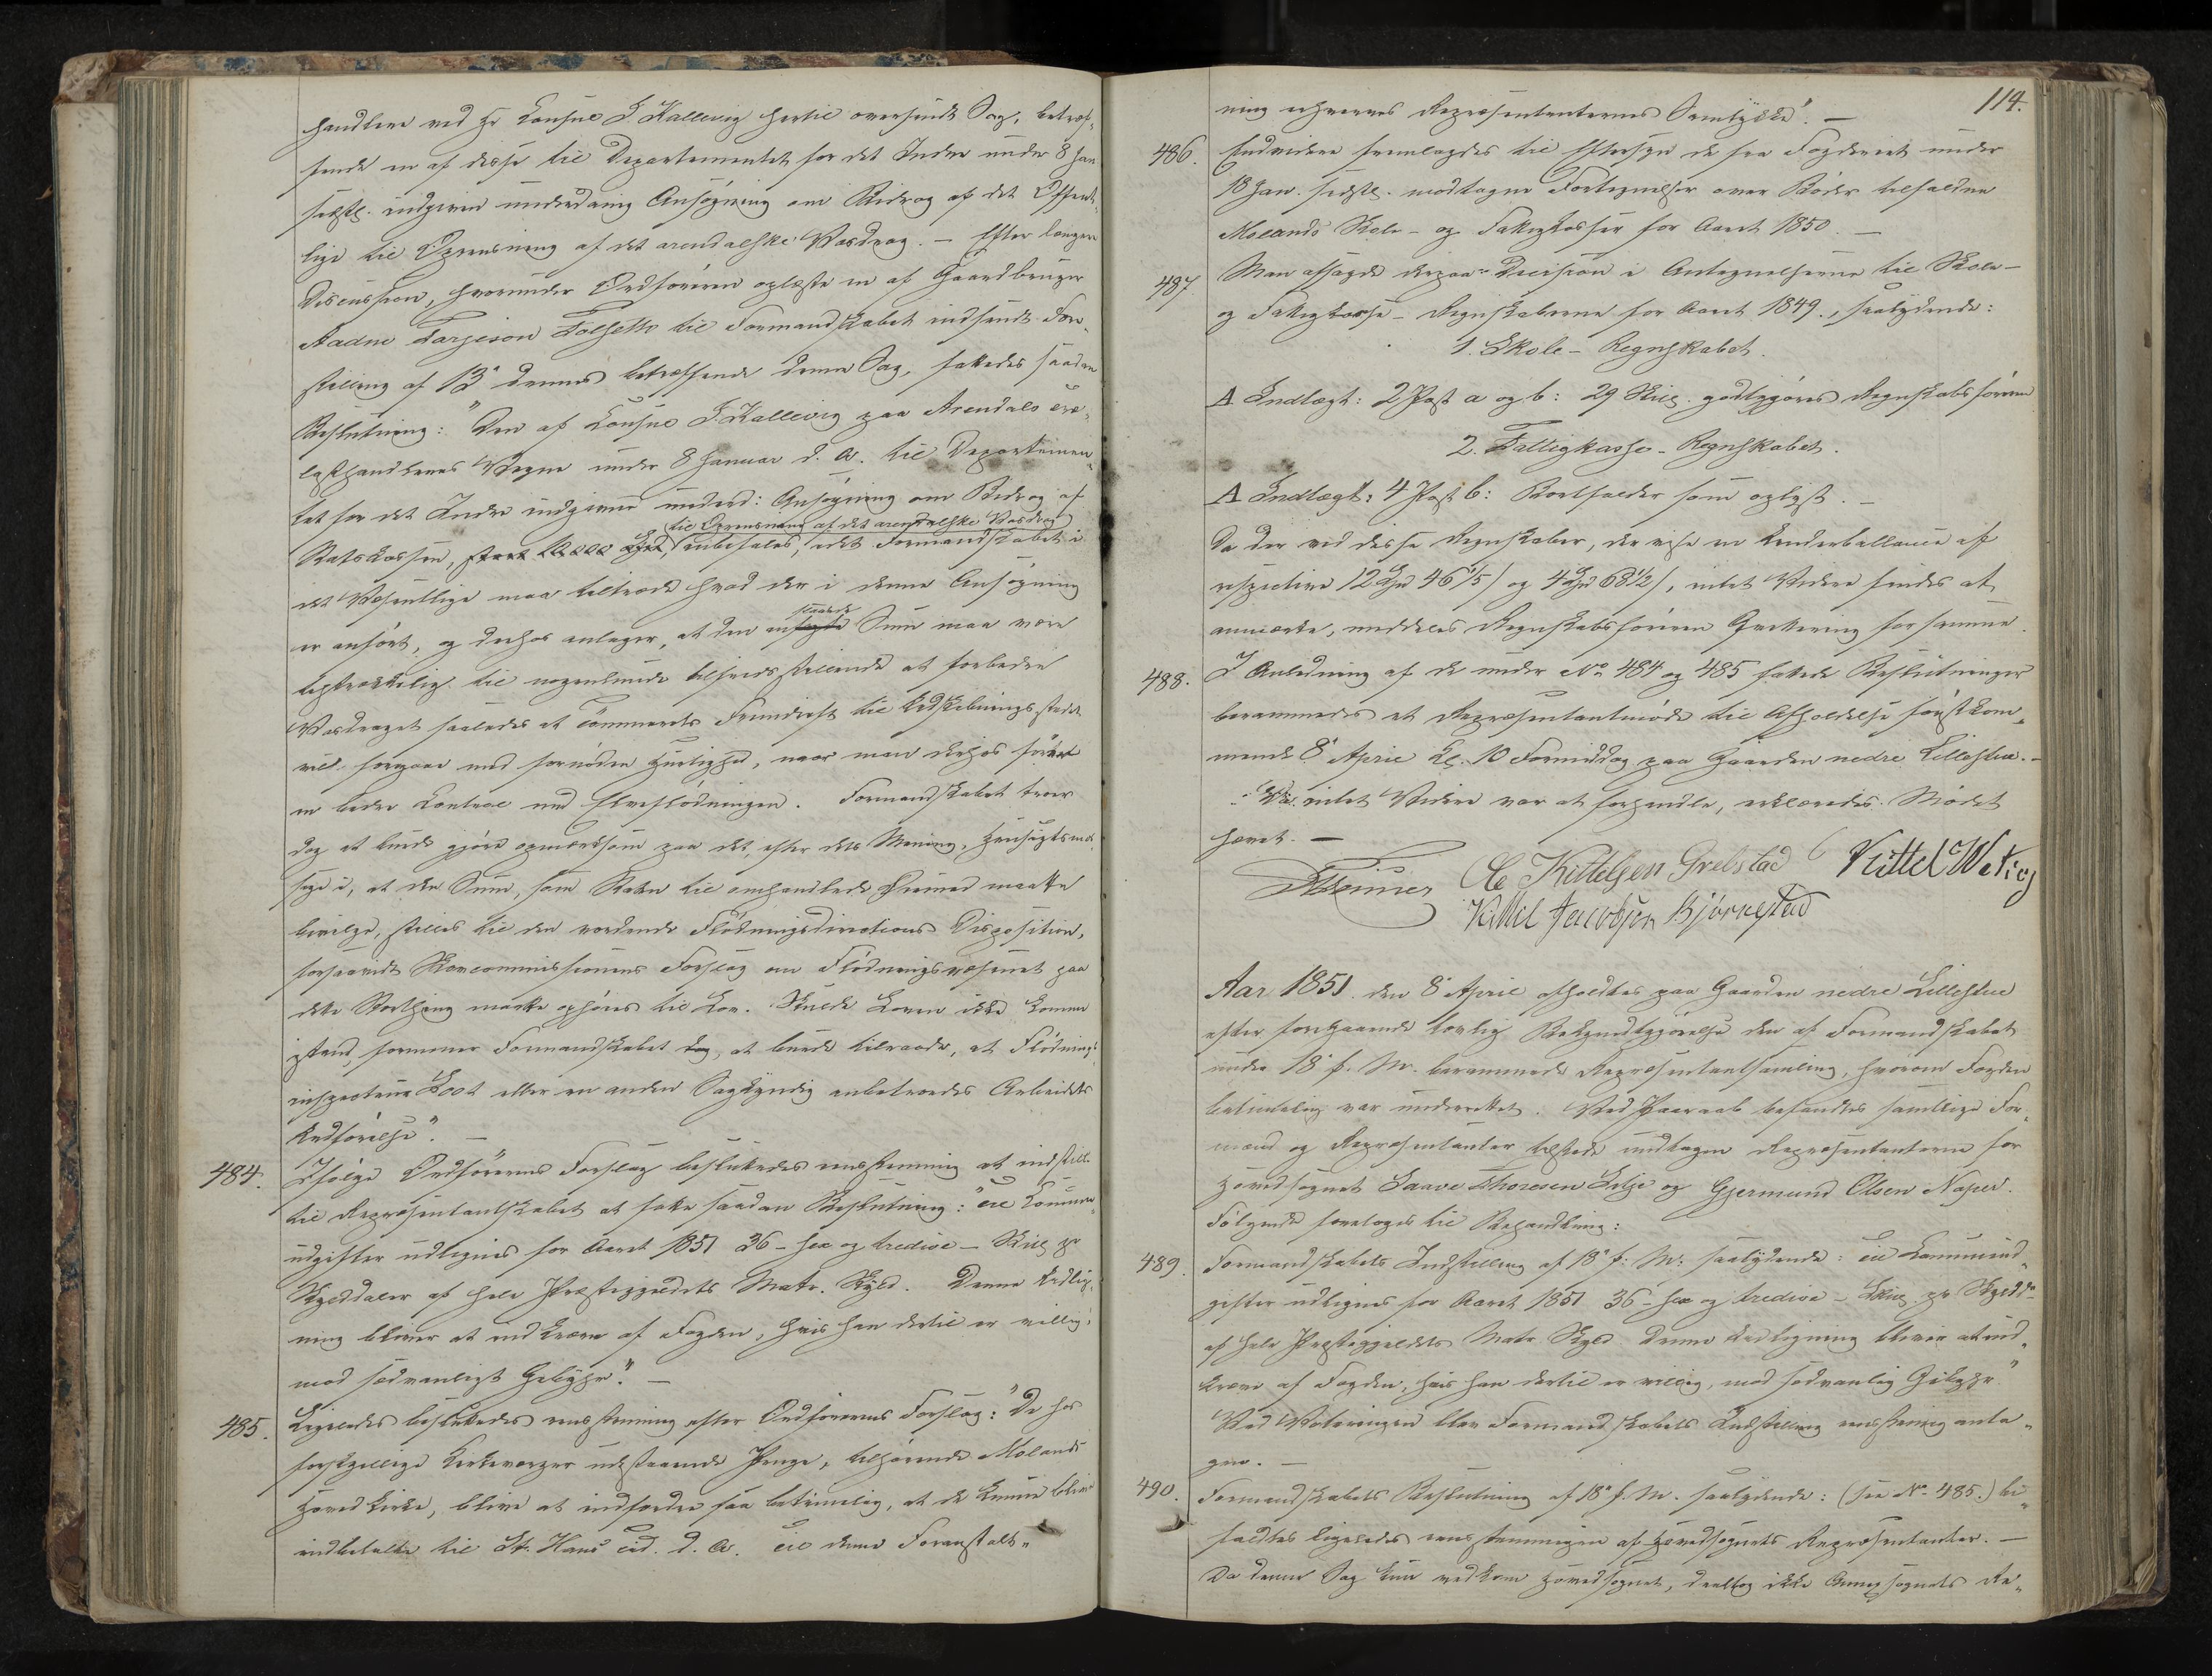 handlere ved Hr Consul J. Kallevig hertil oversendt Sag, betræf-
fende en af disse til Departementet for det Indre under 8 Jan
sidstl. indgiven underdanig Ansøgning om Bidrag af det Offent-
lige til Oprensning af det arendalske Vasdrag. – Efter længere
Discussion, hvorunder Ordføreren oplæste en af Gaardbruger
Aadne Tarjeson Folsette til Formandskabet indsendt Fore-
stilling af 13 dennes betreffende denne Sag, fattedes saadan
Beslutning: "Den af Consul J. Kallevig paa Arendals træ-
lasthandleres Vegne under 8 Januar d. A. til Departemen-
tet for det Indre indgivne underd: Ansøgning om Bidrag af
til Oprensning af det arendalske Vasdrag
Statskassen, anbefales, idet Formandskabet i
det Væsentlige maa tiltræde hvad der i denne Ansøgning
er anført, og derhos antager, at den Sum maa være
tilstrækkelig til nogenlunde tilfredsstillende at forbedre
Vasdraget saaledes at Tømmerets Fremdrift til Udskibningsstedet
vil foregaae med fornøden Hurtighed, naar man derhos
en bedre Control med Elveflødningen. Formandskabet troer
dog at burde gjøre opmærksom paa det, efter dets Mening, Hensigtsmæs-
sige i, at den Sum, som Staten til omhandlede Øiemed maatte
bevilge, stilles til den vordende Flødningsdirections Disposition,
forsaavidt Skovcommissionens Forslag om Flødningsvæsenet paa
dette Storthing maatte ophøies til Lov. Skulde Loven ikke komme
istand, formener Formandskabet at burde tilraade, at Flødnings-
inspecteur Root eller en anden Sagkyndig anbetroedes Arbeidets
Udførelse". –
484. Ifølge Ordførerens Forslag besluttedes eenstemmig at indstille
til Repræsentantskabet at fatte saadan Beslutning: "Til Commune-
udgifter udlignes for Aaret 1851 36 – sex og tredive – Skill. pr
Skylddaler af hele Præstegjeldets Matr. Skyld. Denne Udlig-
ning bliver at indkræve af Fogden, hvis han dertil er villig,
mod sædvanligt Gebyhr." –
485. Ligeledes besluttedes eenstemmig efter Ordførerens Forslag: "De hos
forskjellige Kirkeværger udestaaende Penge, tilhørende Molands
Hovedkirke, blive at indfordre saa betimelig, at de kunne blive
indbetalte til St. Hans Tid. d. A. Til denne Foranstalt-
114.
ning erhverves Repræsentanternes Samtykke". –
486. Endvidere fremlagdes til Eftersyn de fra Fogderiet under
18 Jan. sidstl. modtagne Fortegnelser over Bøder tilfaldne
Molands Skole- og Fattigkasser for Aaret 1850. –
487. Man afsagde derpaa Decision i Antegnelserne til Skole-
og Fattigkasse-Regnskaberne for Aaret 1849., saalydende:
1. Skole-Regnskabet.
A Indtægt: 2 Post a og b: 29 Skill. godtgjøres Regnskabsføreren
2. Fattigkasse-Regnskabet.
A Indtægt: 4 Post b: Bortfalder som oplyst. –
Da der ved disse Regnskaber, der vise en Underballance af
respective 12 Spd 46 1/5 ß og 4 Spd 68 1/2 ß, intet Videre findes at
anmærke, meddeles Regnskabsføreren Qvittering for samme.
488. I Anledning af de under No 484 og 485 fattede Beslutninger
berammedes et Repræsentantmøde til Afholdelse førstkom-
mende 8 April Kl. 10 Formiddag paa Gaarden nedre Lillestue. –
Da intet Videre var at forhandle, erklæredes Mødet
hævet. –
Ole Kittelsen Grebstad Kittel Weting
Kittel Jacobsen Bjørnestad
Aar 1851. den 8 April afholdtes paa Gaarden nedre Lillestue
efter foregaaende lovlig Bekjendtgjørelse den af Formandskabet
under 18 f. M. berammede Repræsentantsamling, hvorom Fogden
betimelig var underrettet. Ved Paaraab befandtes samtlige For-
mænd og Repræsentanter tilstede undtagen Repræsentanterne for
Hovedsognet Saave Thoresen Selje og Gjermund Olsen Naper.
Følgende foretoges til Behandling:
489. Formandskabets Indstilling af 18 f. M. saalydende: Til Communeud-
gifter udlignes for Aaret 1851 36 – sex og tredive – Skill. pr Skylddr
af hele Præstegjeldets Matr. Skyld. Denne Udligning bliver at ind-
kræve af Fogden, hvis han dertil er villig, mod sædvanlig Gebyhr."
Ved Voteringen blev Formandskabets Indstilling eenstemmig anta-
gen. –
490. Formandskabets Beslutning af 18 f. M. saalydende: (see No 485.) bi-
faldtes ligeledes eenstemmigen af Hovedsognets Repræsentanter. –
Da denne Sag kun vedkom Hovedsognet, deeltog ikke Annexsognets Re-